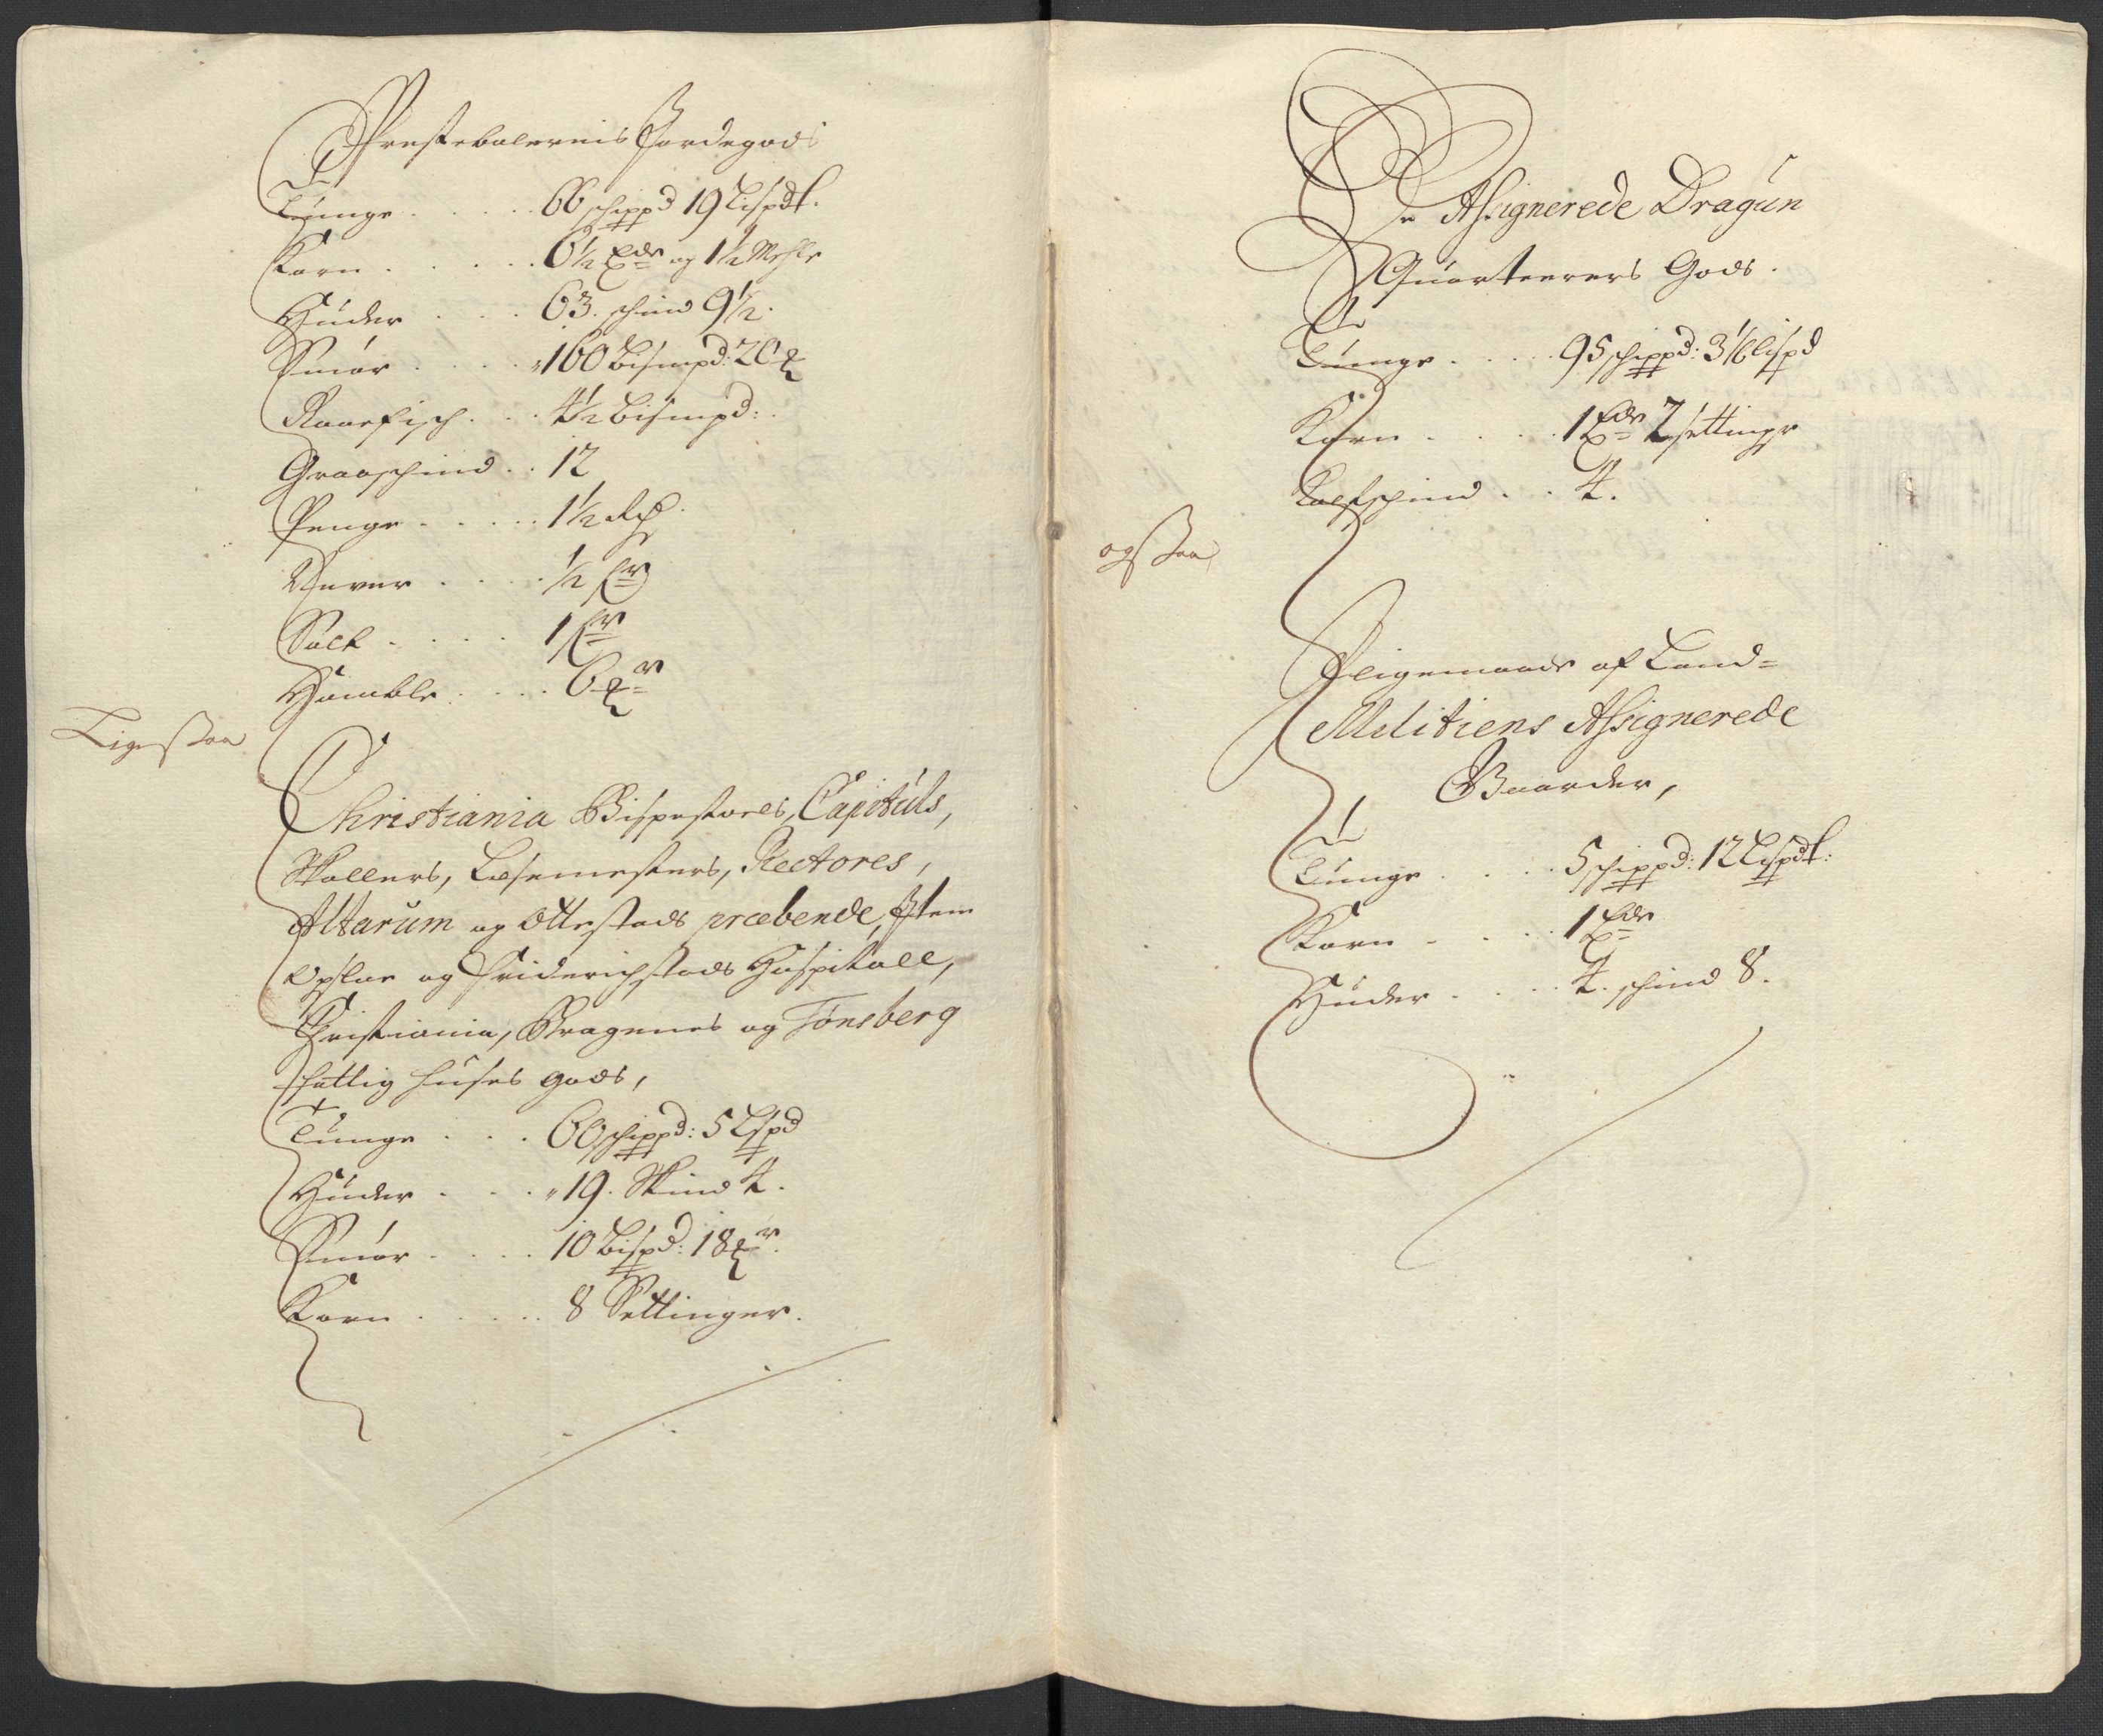 Prestebolernis Jordegods
Tunge . . . . . 66 schippd 19 Lispdt.
Korn . . . . . 6½ Tdr og 1½ Mehle
Huder . . . 63. schind 9½.
Smör . . . . 160 bismpd: 20 ℔
Raaefisch . . . 4½ bismpd:
Graaschind . . 12
Penge . . . . . 1½ Rd.
Korn
Salt . . . . 1
Humble . . . . 6 ℔r
Ligesaa
Christiania Bispestoels, Capituls,
Skollers, Læsemesters, Rectores,
Altarum og Ottestads præbende, Item
Opsloe og Friderichstads Hospitall,
Christiania, Bragenes og Tönsberg
fattig huses gods,
Tunge . . . 60 schippd: 5 Lispd
Huder . . . 19. Skind 4.
Smör . . . . 10 Bispd: 18 ℔r.
Korn . . . . . 8 Settinger.
De Assignerede Dragun
Quarteerers Gods.
Tunge . . . . 95 schippd: 3⅙ lispd
Korn . . . . 1 Tdr 2 settinge
Kalfschind . . 4.
ogsaa
Ligemaade af Land=
Militiens Assignerede
Gaarder,
Tunge . . . . 5 schippd: 12 Lispdt:
Korn . . . . 1 Tdr
Huder . . . . 4. schind 8.